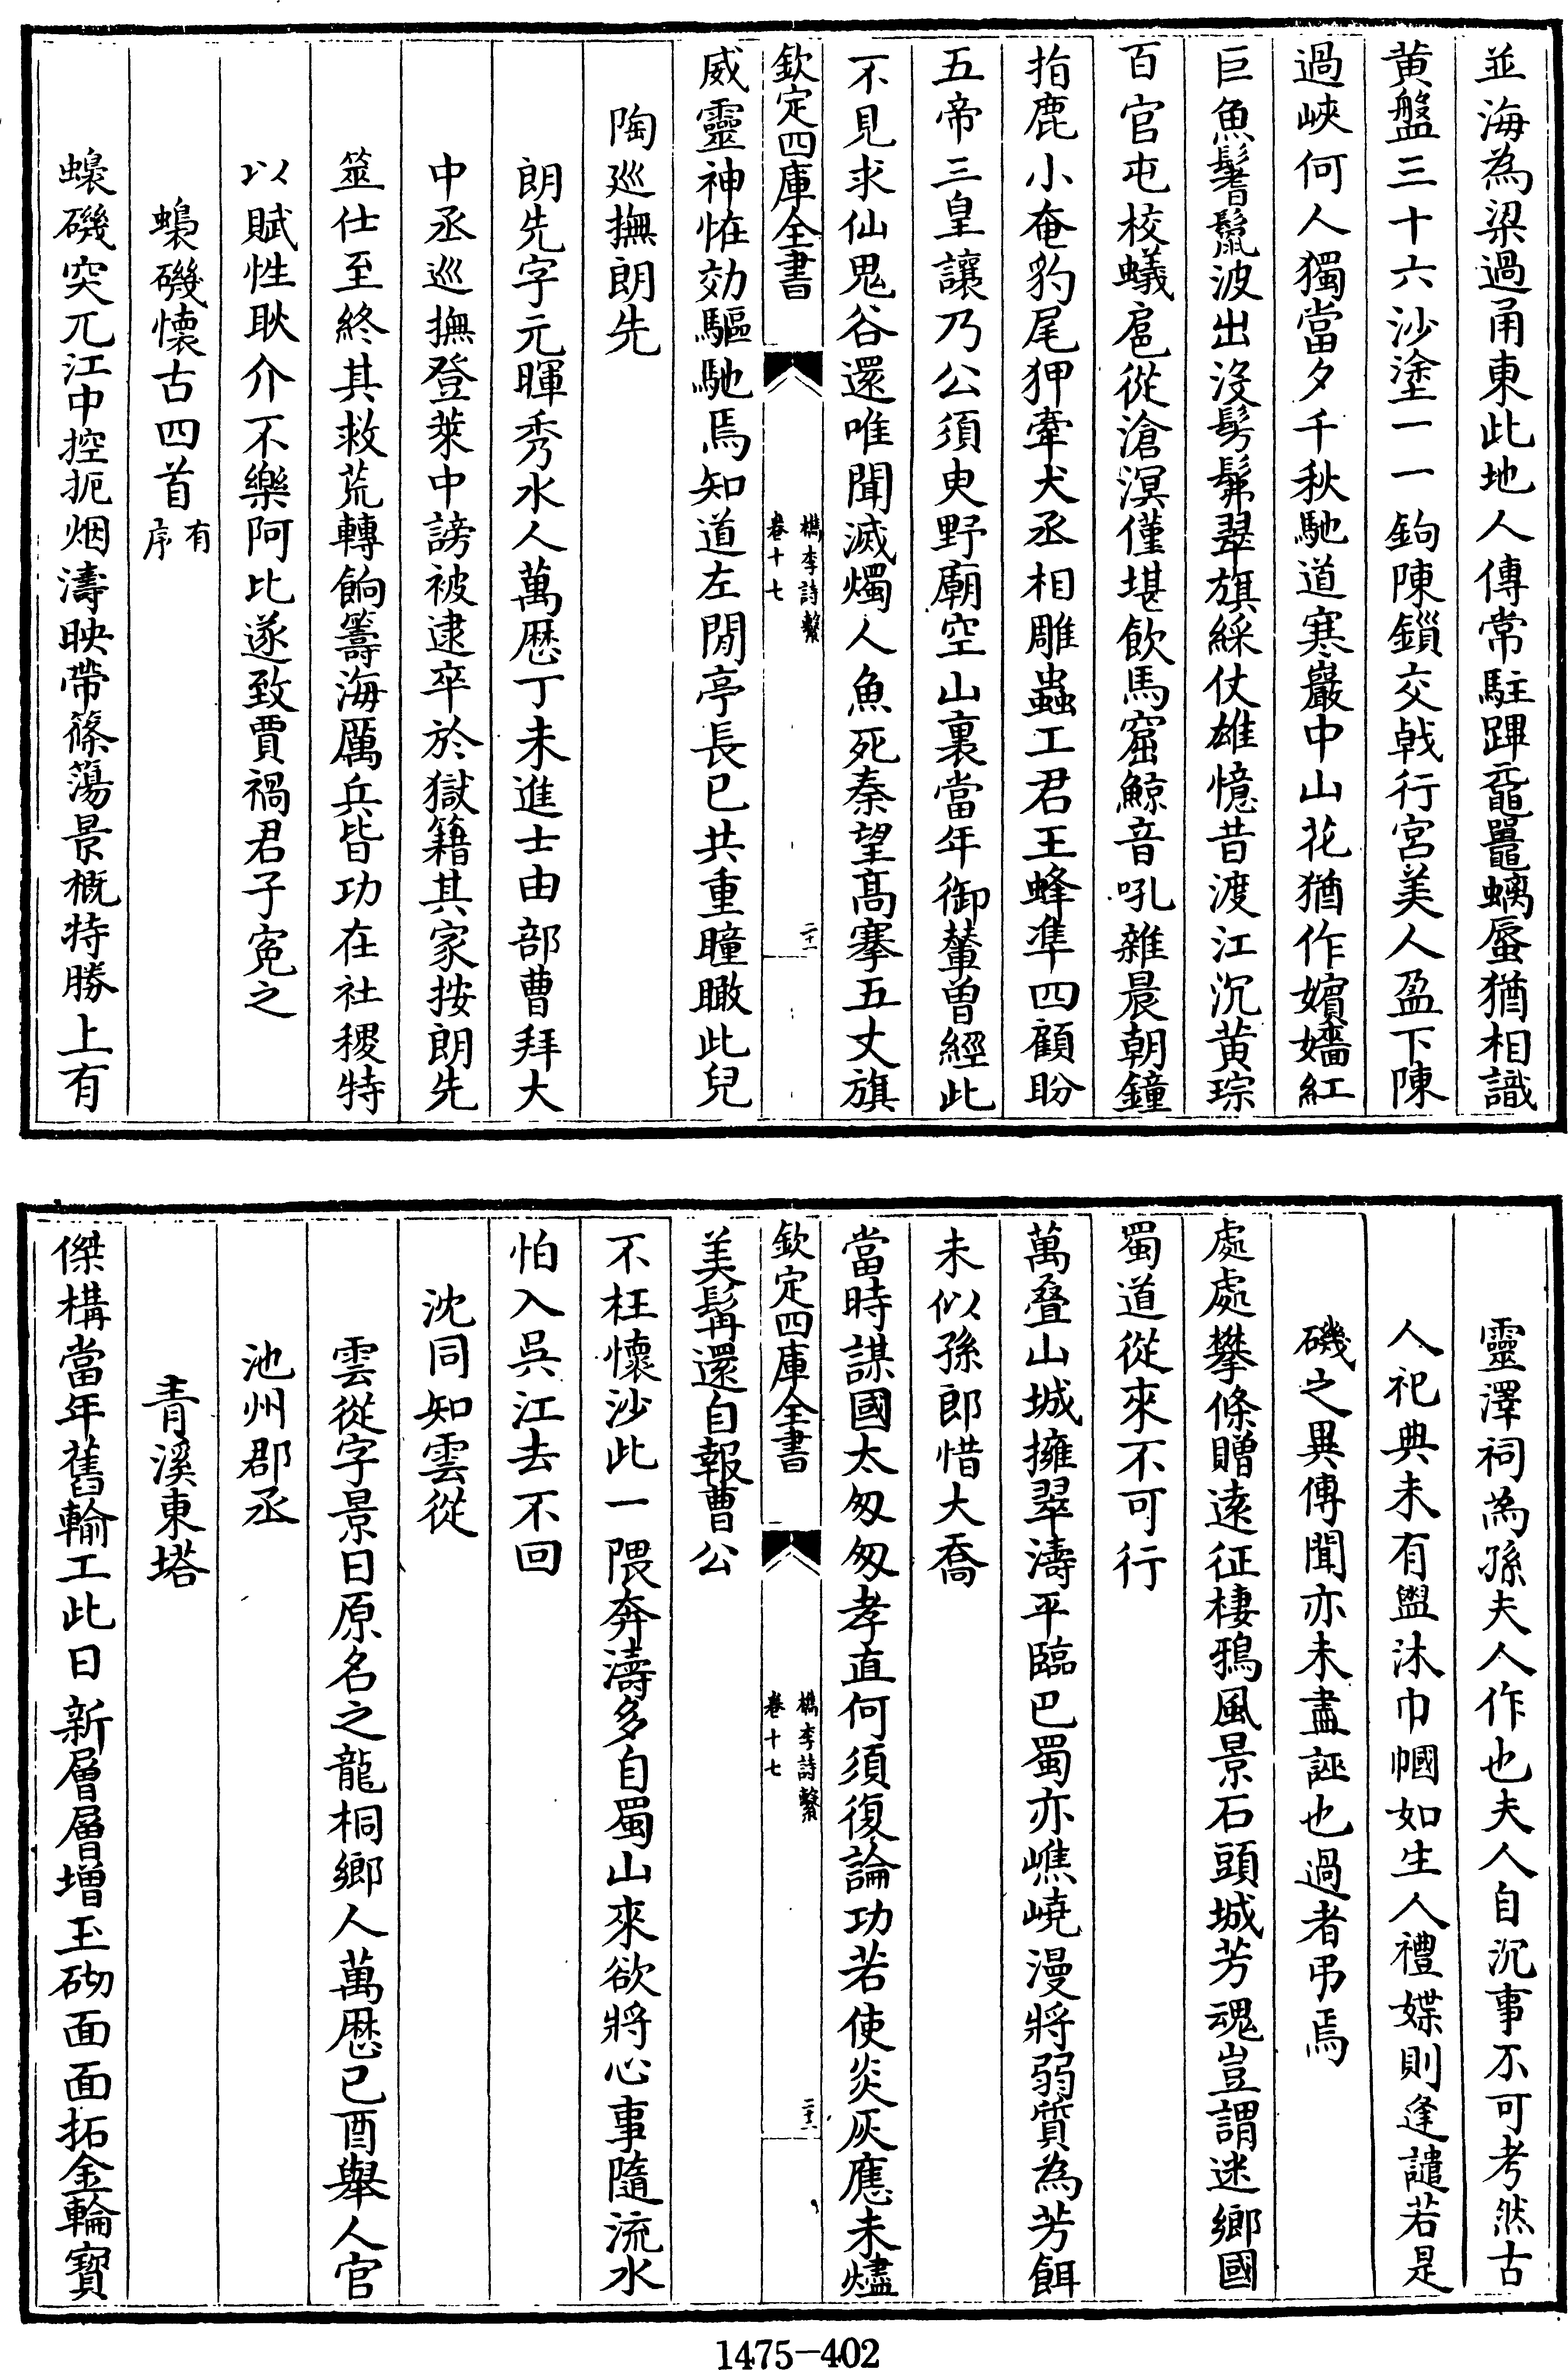 並海為梁過甬東此地人傳常駐蹕黿鼉螭蜃猶相識
黄盤三十六沙塗一一鉤陳鎻交戟行宮美人盈下陳
過峽何人獨當夕千秋馳道寒巖中山花猶作嬪嬙紅
巨魚鬐鬣波出沒髣髴翠旗綵仗雄憶昔渡江沉黄琮
百官屯校蟻扈從滄溟僅堪飲馬窟鯨音吼雜晨朝鐘
指鹿小奄豹尾狎牽犬丞相雕蟲工君王蜂凖四顧盼
五帝三皇讓乃公須臾野廟空山裏當年御輦曽經此
不見求仙鬼谷還唯聞滅燭人魚死秦望髙搴五丈旗
欽定四庫全書
檇李詩繫
卷十七
二十一
威靈神恠効驅馳焉知道左閒亭長已共重瞳瞰此兒
陶廵撫朗先
朗先字元暉秀水人萬歴丁未進士由部曹拜大
中丞巡撫登萊中謗被逮卒於獄籍其家按朗先
筮仕至終其救荒轉餉籌海厲兵皆功在社稷特
以賦性耿介不樂阿比遂致賈禍君子寃之
蟂磯懐古四首有序
蟂磯突兀江中控扼烟濤映帶篠蕩景概特勝上有
靈澤祠為孫夫人作也夫人自沉事不可考然古
人祀典未有盥沐巾幗如生人禮媟則逢譴若是
磯之異傳聞亦未盡誣也過者弔焉
處處攀條贈逺征棲鴉風景石頭城芳魂豈謂迷鄉國
蜀道從來不可行
萬疊山城擁翠濤平臨巴蜀亦嶕嶢漫將弱質為芳餌
未似孫郎惜大喬
當時謀國太匆匆孝直何須復論功若使炎灰應未燼
欽定四庫全書
檇李詩繫
卷十七
二十二
美髯還自報曹公
不枉懷沙此一隈奔濤多自蜀山來欲將心事隨流水
怕入吳江去不回
沈同知雲從
雲從字景日原名之龍桐鄉人萬歴己酉舉人官
池州郡丞
青溪東塔
傑構當年舊輸工此日新層層增玉砌面面拓金輪寳
1475-402